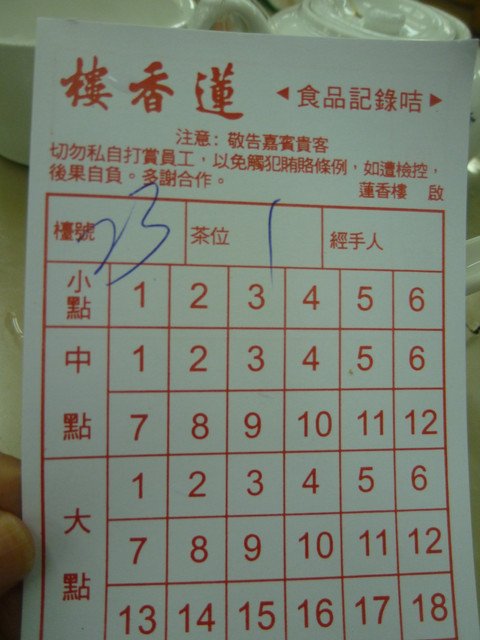 樓香蓮 ◀食品記錄咭▶
注意: 敬告嘉賓貴客
切勿私自打賞員工，以免觸犯賄賂條例，如遭檢控，
後果自負。多謝合作。 蓮香樓 啟
檯號 23 茶位 1 經手人
小點 1 2 3 4 5 6
中點 1 2 3 4 5 6
7 8 9 10 11 12
大點 1 2 3 4 5 6
7 8 9 10 11 12
13 14 15 16 17 18